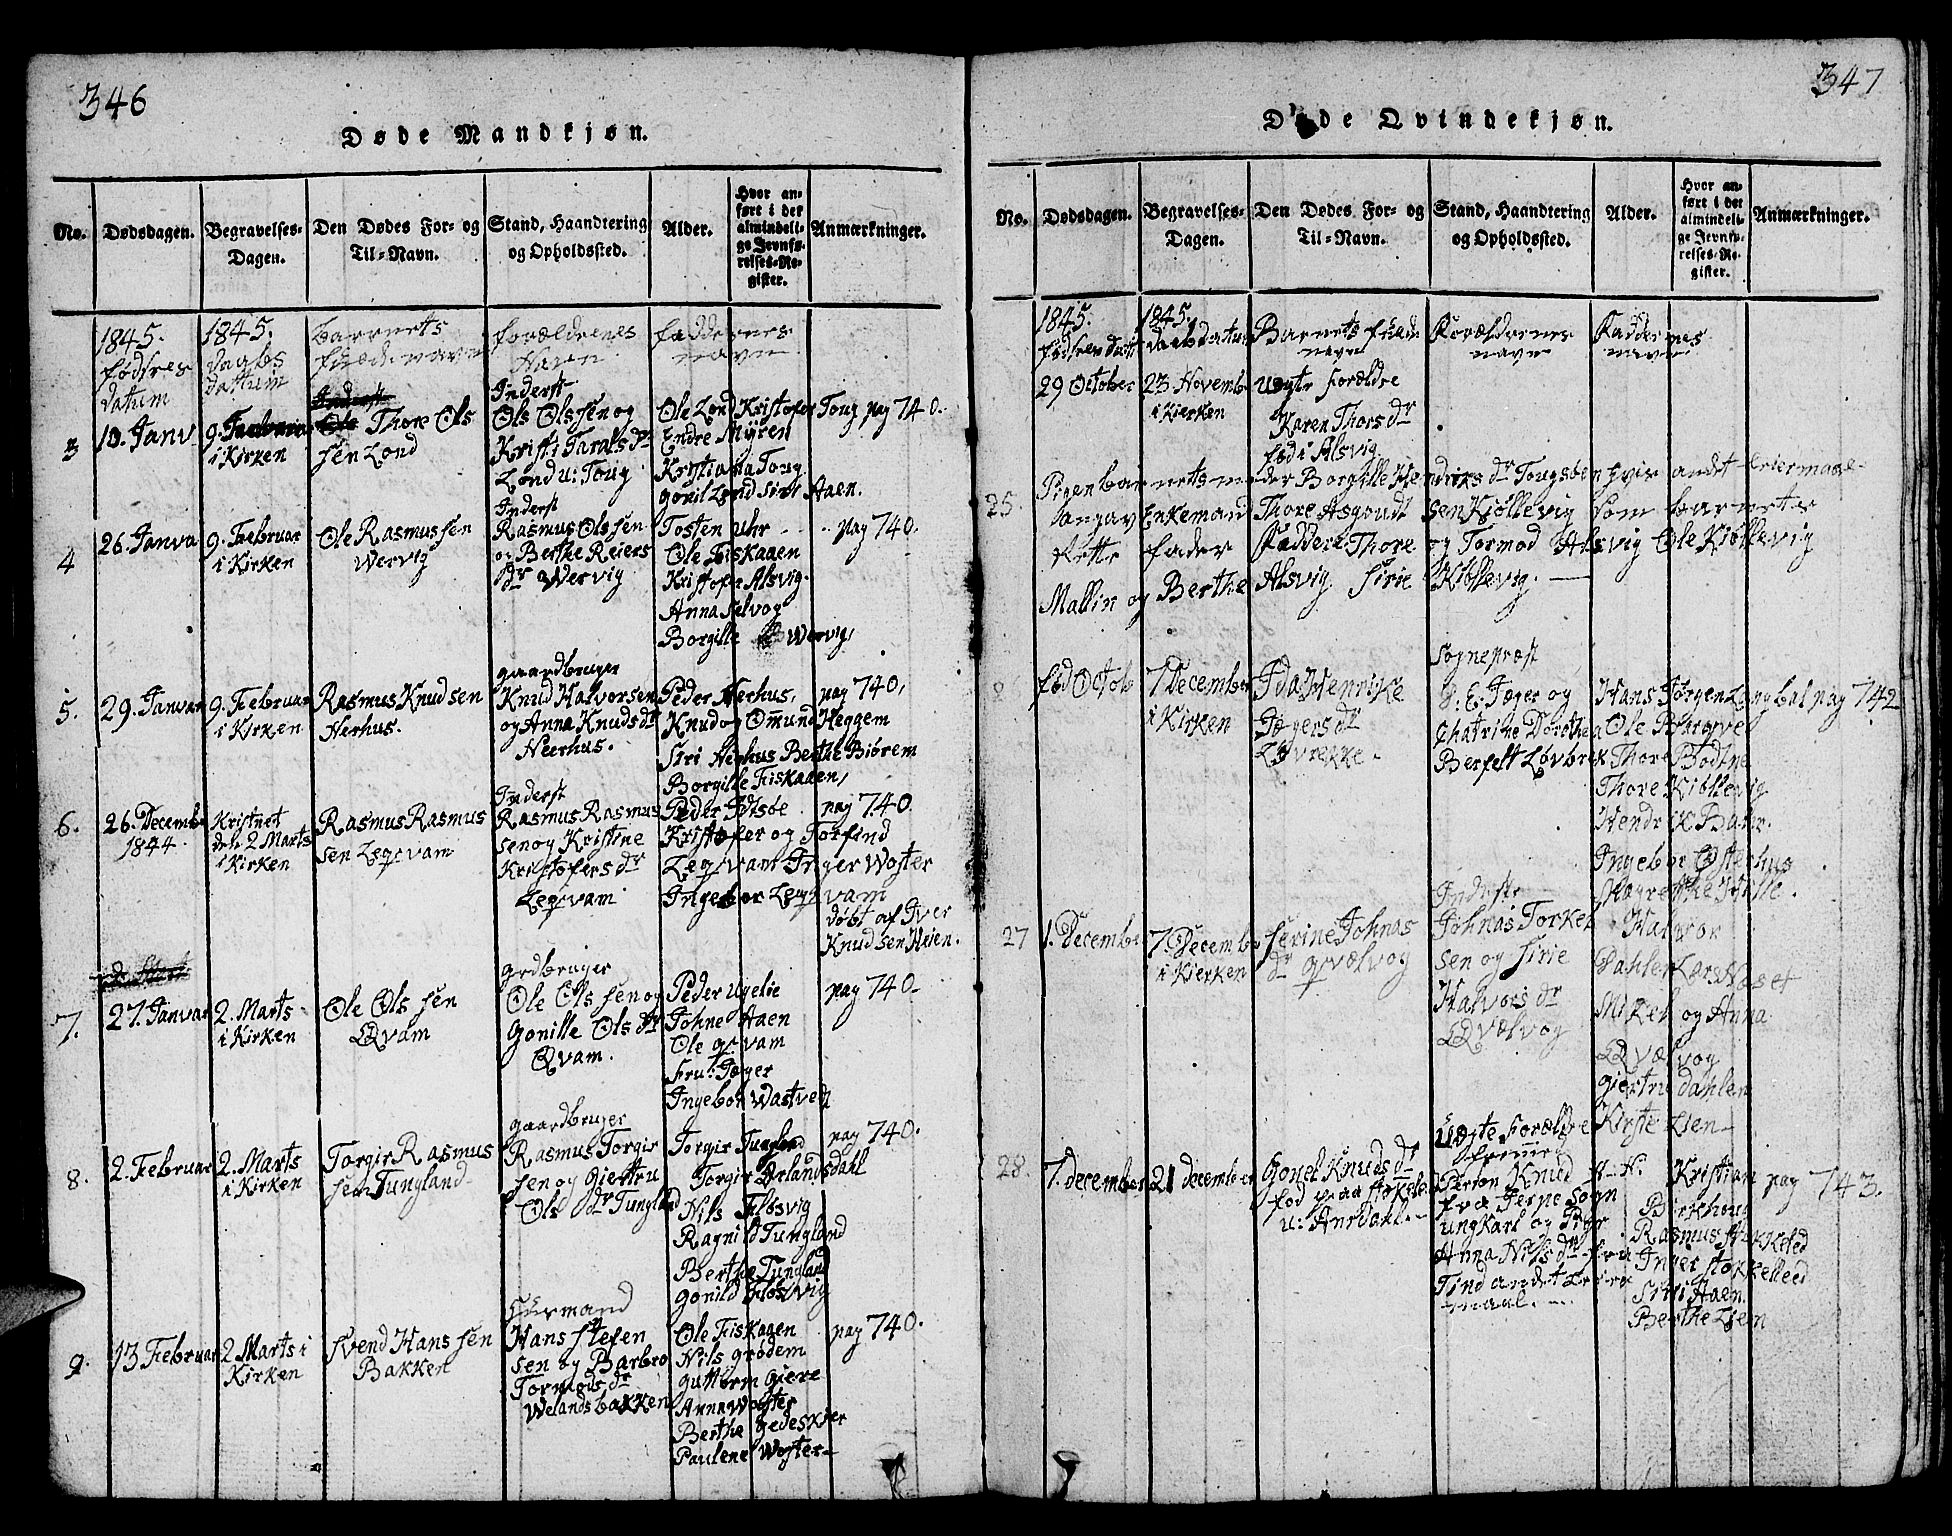 346
Døde Mandkjøn.
No. Dødsdagen. Begravelses-Dagen. Den Dødes For- og Til-Navn. Stand, Haandtering og Opholdssted. Alder. Hvor anført i det almindelige Jevnførelses-Register. Anmærkninger.
1845. fødsres datum
1845. daabs dattum
barnets fuldenavn
forældrenes Navn
faddernes navn
3 10. Janv
9. Februar i Kirken
Thore Ols
sen Lond
Inderst
Ols Olssen og
Kristi Tarals dr
Lond u: Toug
Ole Lond Kristofer Toug pag 740.
Endre Myren
Kristiana Toug
gonil Lond Siri Aaen.
4 26. Janva
9. Februar
i Kirken
Ole Rasmussen
Wervig
Inderst
Rasmus Olssen
og Berthe Reiers
dr Wervig
Tosten Uhr pag 740.
Ole Fiskaaen
Kristofer Alsvig.
Anna Selvog
Borgille Wervig
5. 29. Janvar
9. Februar
i Kirken
Rasmus Knudsen
Nerhus.
gaardbruger
Knud Halvorsen
og Anna Knuds dr
Neerhus.
Peder Nerhus, pag 740,
Knud og Omund Heggem
Siri Nerhus Berthe Biørem
Borgille Fiskaaen,
6. 26. Decemb
1844.
Kristnet
den 2 Marts
i Kirken
Rasmus Rasmus
sen Leqvam
Inderst
Rasmus Rasmus
sen og Kristine
Kristofers dr
Leqvam
Peder Idtsøe pag 740.
Kristofer og Torfind
Leqvam Inger Woster
Ingebor Leqvam
døbt af Iver
Knudsen Heien.
7. 27. Janvar
2. Marts
i Kirken
Ole Ols sen
Qvam
grdbruger
Ole Olssen og
Gonille Ols dr
Qvam.
Peder Ugelie pag 740.
Johne Aaen
Ole qvam
Fru: Jæger
Ingebor Wastvedt
8. 2. Februar
2. Marts
i Kirken
Torgir Rasmus
sen Tungland
gaardbruger
Rasmus Torgir
sen og Giertru
Ols dr Tungland
Torgir Tungland pag 740.
Torgir Ørlandsdahl
Nils Fløsvig
Ragnild Tungland
Berthe Tungland
gonild Fløsvig
9. 13. Februar
2. Marts i
Kirken
Svend Hans sen
Bakken
Huusmand
Hans Stefen
sen og Barbro
Tormods dr
Welandsbakken
Ole Fiskaaen pag 740.
Nils grødem
guttorm giere
Anna Woster
Berthe gedeskier
Paulene Woster
347
Døde Qvindekjøn.
No. Dødsdagen. Begravelses-Dagen. Den Dødes For- og Til-Navn. Stand, Haandtering og Opholdssted. Alder. Hvor anført i det almindelige Jevnførelses-Register. Anmærkninger.
1845. fødsres datt
1845. daabs datum
Barnets fulde navn
Forældrernes navn
Faddernes navn
29 October
23 Novemb
i Kierken
Uegte forældre
Karen Thors dr
fød i Alsvig.
25. Pigenbarnets moder Borgille Hendriks dr Tougsøen hvis andet leiermaal
angav Enkemand Thore Asgoudt sen Kiøllevig som barnets
Rette fader Faddere Thore og Tormod Alsvig Ole Kiøllevig
Mallin og Berthe Alsvig Sirie Kiøllevig.
fød Octob
7 December
i Kirken
Ida Henrikke
Jægers dr
Løvrekke.
Sogneprest
E. Jæger og
Chatrine Dorothea
Berfelt Løvbrek
Hans Jørgen Langbal pag 742
Ole Bargve
Thore Bødtne
Thore Kiøllevig
Hendrik Bahr.
Ingebor Østerhus
Magrethe Hille.
27 1. December
7. Decemb
i Kierken
Serine Johnas
dr qvælvog
Inderst
Johnas Torkel
sen og Sirie
Halvors dr
Qvælvog
Halvor
Dahlen Lars Næset
Mikel og Anna
Qvælvog
giertru dahlen
Kirste Lien
28. 7. december
21 december
Gonel Knuds dr
fød paa Stokkele
u: Anrdahl.
Uægte Forældre
Person Knud N: N:
fra Jerpe sogn
ungkarl og Pige
Anna Nils dr fra
Tind andet Leier
maal.
Kristian pag 743.
Birkhoug
Rasmus Stokkeled
Inger Stokkeleed
Siri Aaen
Berthe Lien